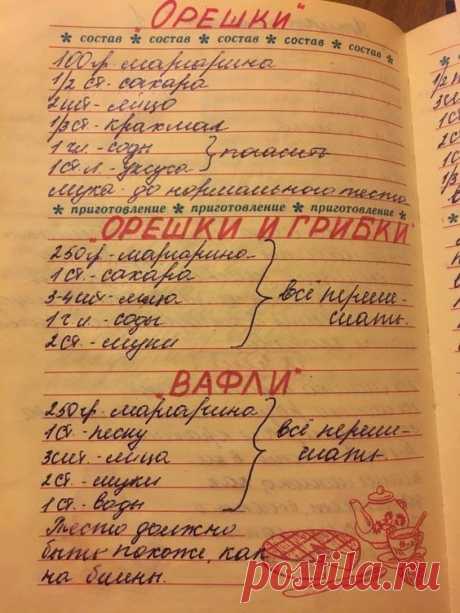 "ОРЕШКИ"
* состав * состав * состав * состав * состав *
100гр. маргарина
1/2 ст. сахара
2 шт. яйцо
1/3 ст. крахмал
1 чл. соды
1 ст. л. уксуса } погасить
мука до нормального теста
* приготовление * приготовление * приготовление *
"ОРЕШКИ И ГРИБКИ"
250гр. маргарина
1 ст. сахара
3-4 шт. яйца
1 чл. соды
2 ст. муки
всё переме-
шать.
"ВАФЛИ"
250гр. маргарина
1 ст. песку
3 шт. яйца
2 ст. муки
1 ст. воды
всё переме-
шать.
Тесто должно
быть похоже, как
на блины.
postila.ru